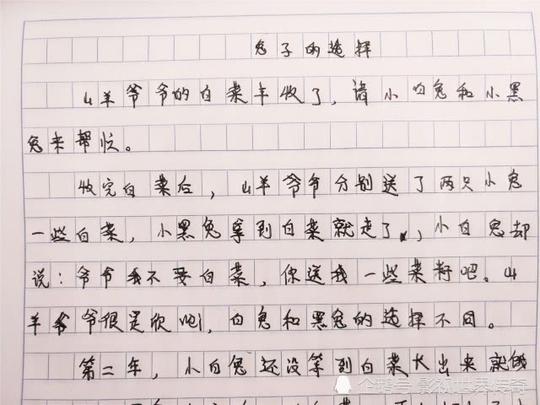 兔子的选择
山羊爷爷的白菜丰收了，请小白兔和小黑
兔来帮忙。
收完白菜后，山羊爷爷分别送了两只小兔
一些白菜，小黑兔拿到白菜就走了，小白兔却
说：爷爷我不要白菜，你送我一些菜籽吧。山
羊爷爷很是欣慰，白兔和黑兔的选择不同。
第二年，小白兔还没等到白菜长出来就